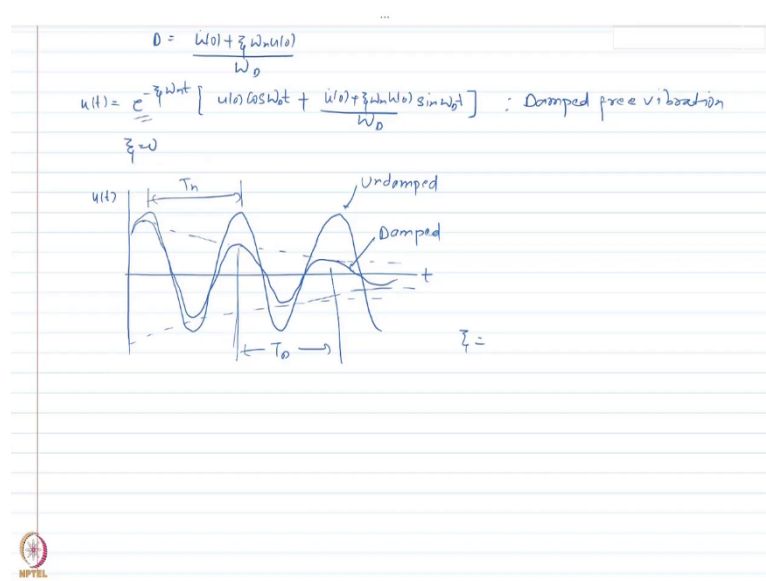 ...
D = u̇(0) + ξ ωn u(0) / ωD
u(t) = e^(-ξ ωn t) [ u(0) cos ωD t + u̇(0) + ξ ωn u(0) / ωD sin ωD t ] : Damped free vibration
ξ = 0
u(t)
Tn
Undamped
Damped
t
TD
ξ =
NPTEL